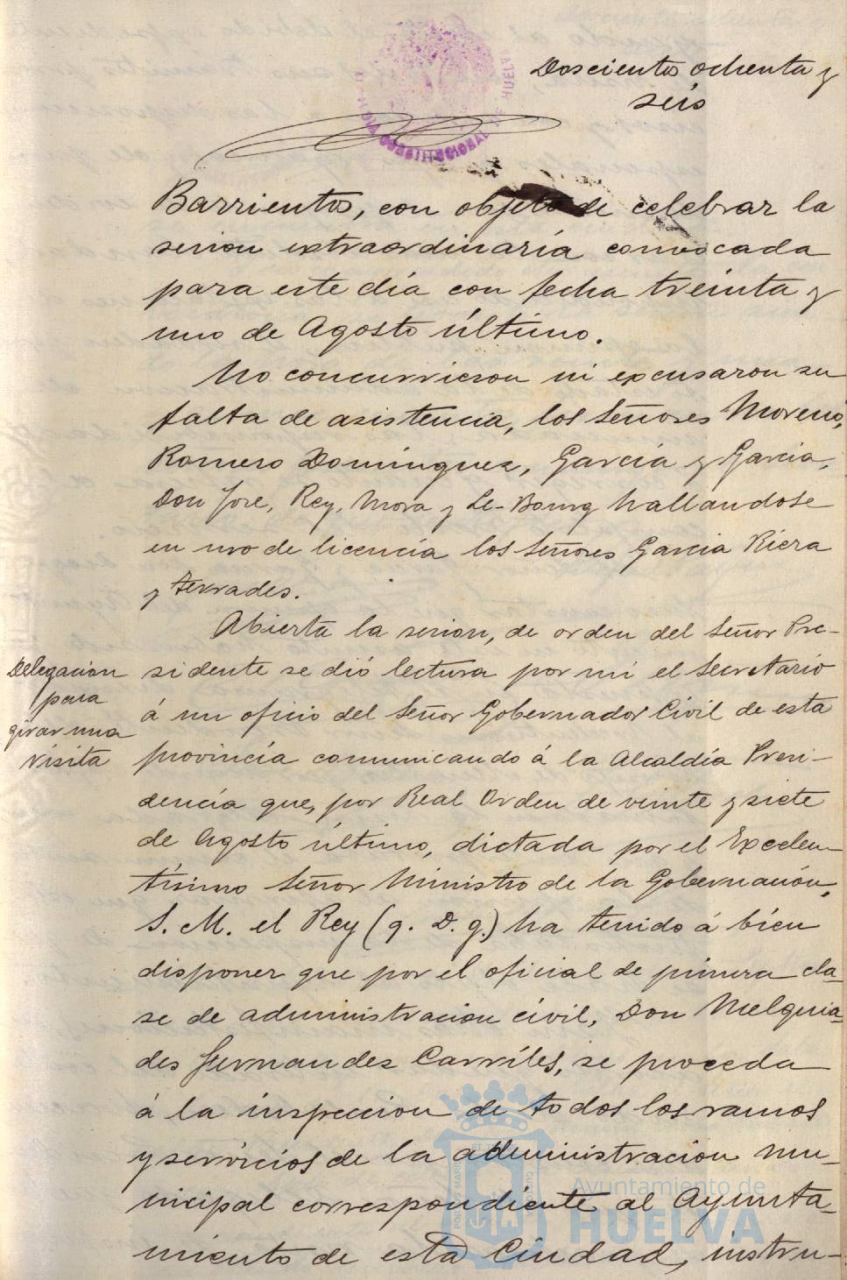 Doscientos ochenta y
seis
ALCALDIA CONSTITUCIONAL DE HUELVA
Barrientos, con objeto de celebrar la
sesion extraordinaria convocada
para este día con fecha treinta y
uno de Agosto último.
No concurrieron ni excusaron su
falta de asistencia, los Señores Moreno,
Romero Domínguez, García y García,
Don José, Rey, Mora y Le-Bourg hallandose
en uso de licencia los Señores Garcia Riera
y Terrades.
Abierta la sesion, de orden del Señor Pre-
sidente se dió lectura por mi el Secretario
á un oficio del Señor Gobernador Civil de esta
provincia comunicando á la Alcaldía Presi-
dencia que, por Real Orden de veinte y siete
de Agosto último, dictada por el Excelen-
tísimo Señor Ministro de la Gobernación,
S. M. el Rey (q. D. g.) ha tenido á bien
disponer que por el oficial de primera cla-
se de administracion civil, Don Melquia-
des Fernandez Carriles, se proceda
á la inspeccion de todos los ramos
y servicios de la administracion mu-
nicipal correspondiente al Ayunta-
miento de esta Ciudad, instru-
Delegacion
para
girar una
visita
Ayuntamiento de
HUELVA